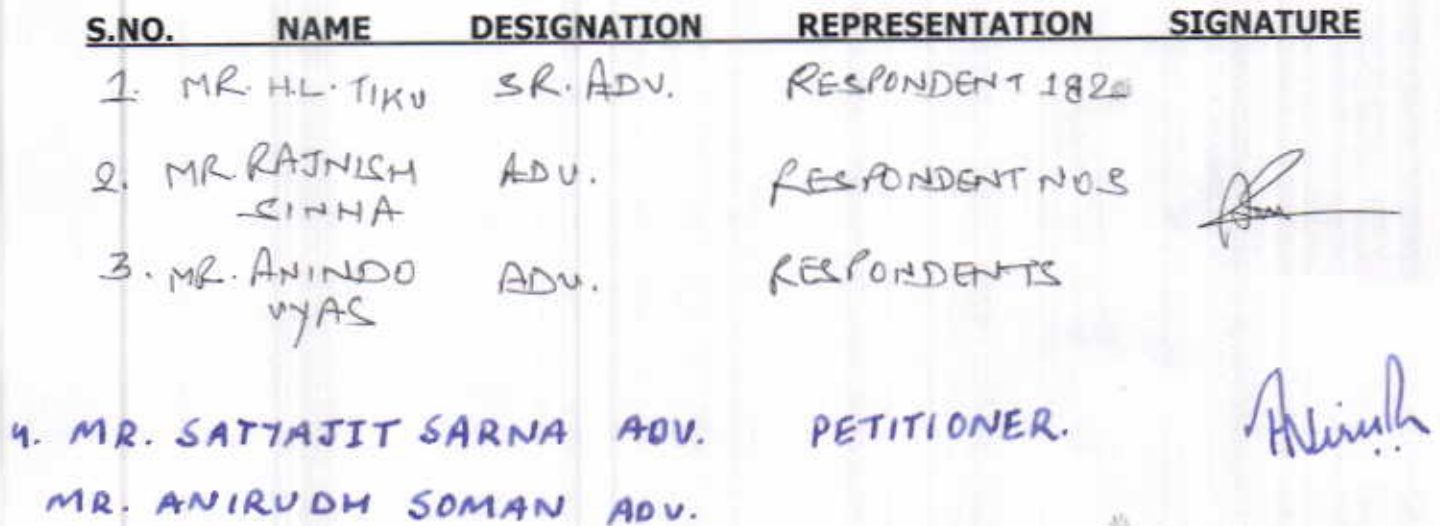 S.NO. NAME DESIGNATION REPRESENTATION SIGNATURE
1. MR. H.L. TIKU SR. ADV. RESPONDENT 1&2
2. MR. RAJNISH ADV. RESPONDENT NO.3
SINHA
3. MR. ANINDO ADV. RESPONDENTS
VYAS
4. MR. SATYAJIT SARNA ADV. PETITIONER. Anirudh
MR. ANIRUDH SOMAN ADV.